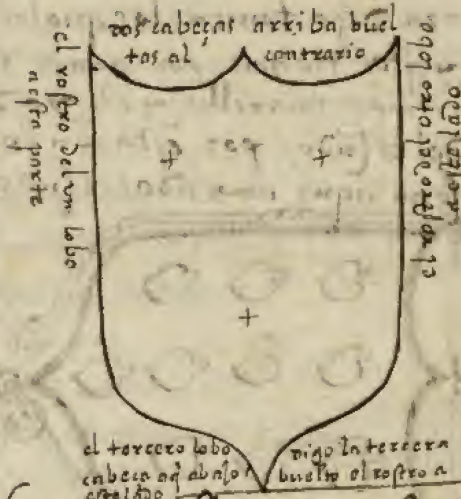 dos cabeças arriba buel
tas al contrario
el rostro del un lobo
a esta parte
el rostro del otro lobo
a este lado
el tercero lobo
cabeca aq abajo
este lado
digo la tercera
buelto el rostro a